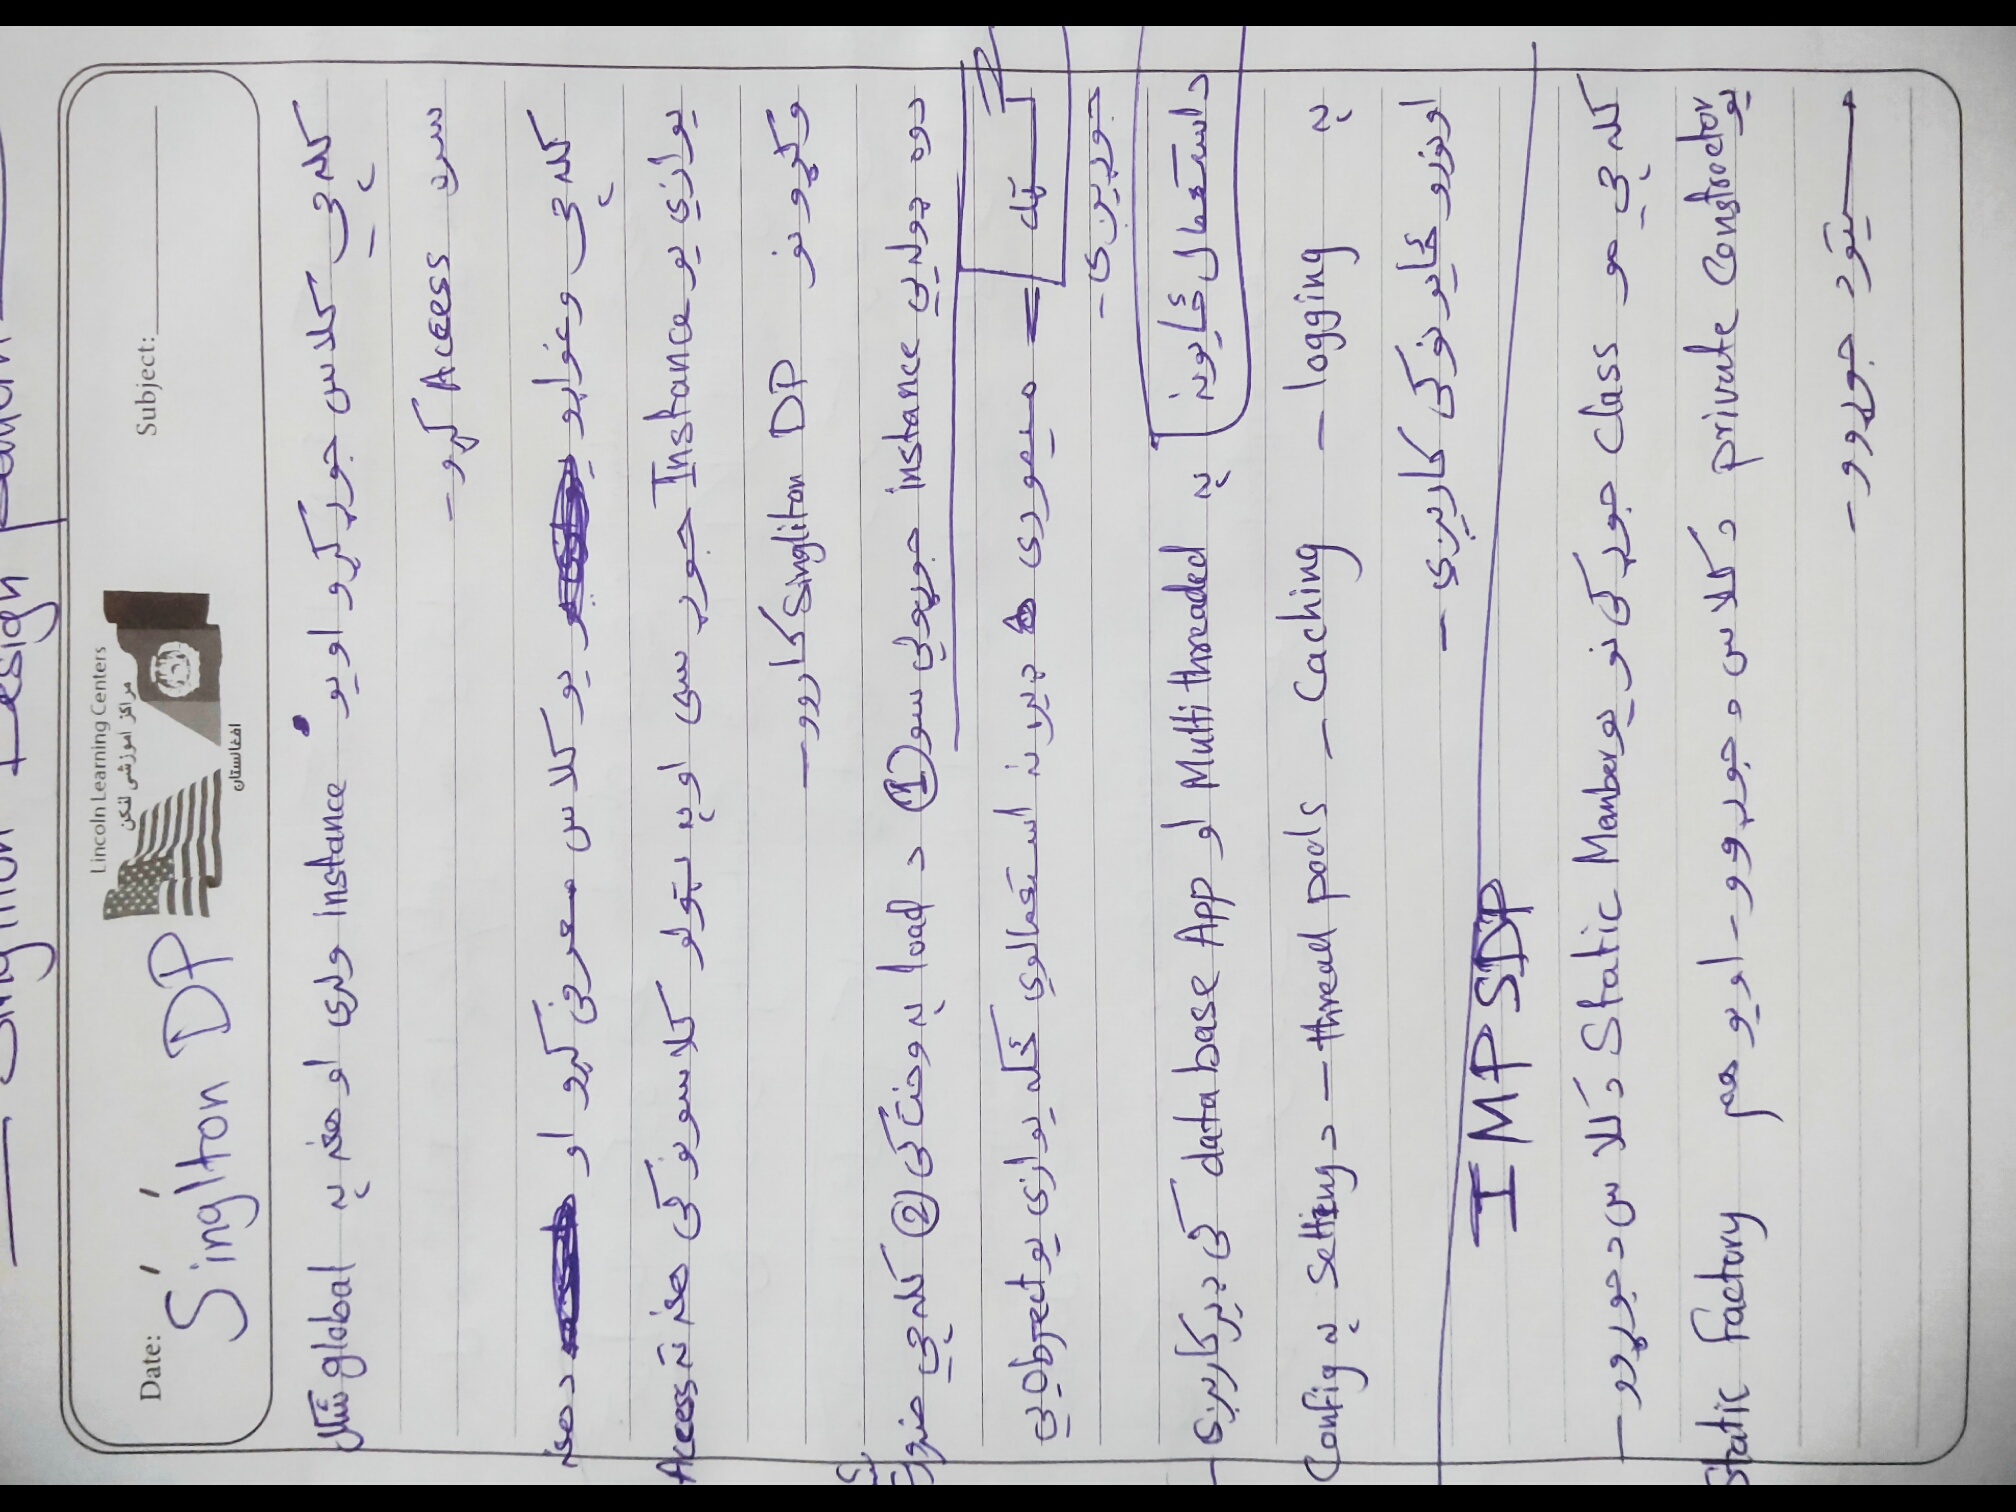 Singliton Design pattern
Lincoln Learning Centers
مراکز آموزشی لنکن
Date: / / Subject:
Singlton DP
افغانستان
کله چي کلاس جوړ کړو او یو instance ولری او هغه په global شکل
سره Access کړو -
کله چي وغواړو یو کلاس معرفی کړو او د هغه
یوازي یو Instance جوړ سی او په ټولو کلاسونو کی هغه ته Access
وکړو نو Singliton DP کاروو -
دوه ډوله یې instance جوړولي سو ① د load په وخت کی ② کله چي ضرور
ګټه = میموری ډیره نه استعمالوي ځکه یوازی یو Object یې
جوړیږی -
د استعمال ځایونه په Multi threaded او data base App کی ډیر کاریږی -
په logging - Caching - thread pools - د Setting په Config
او نورو ځایونو کی کاریږي -
IMP SDP
کله چي مو class جوړ کی نو یو Static Member د کلاس د جوړوو -
یو private Constroctor د کلاس د جوړوو - او یو هم Static Factory
میتود جوړوو -